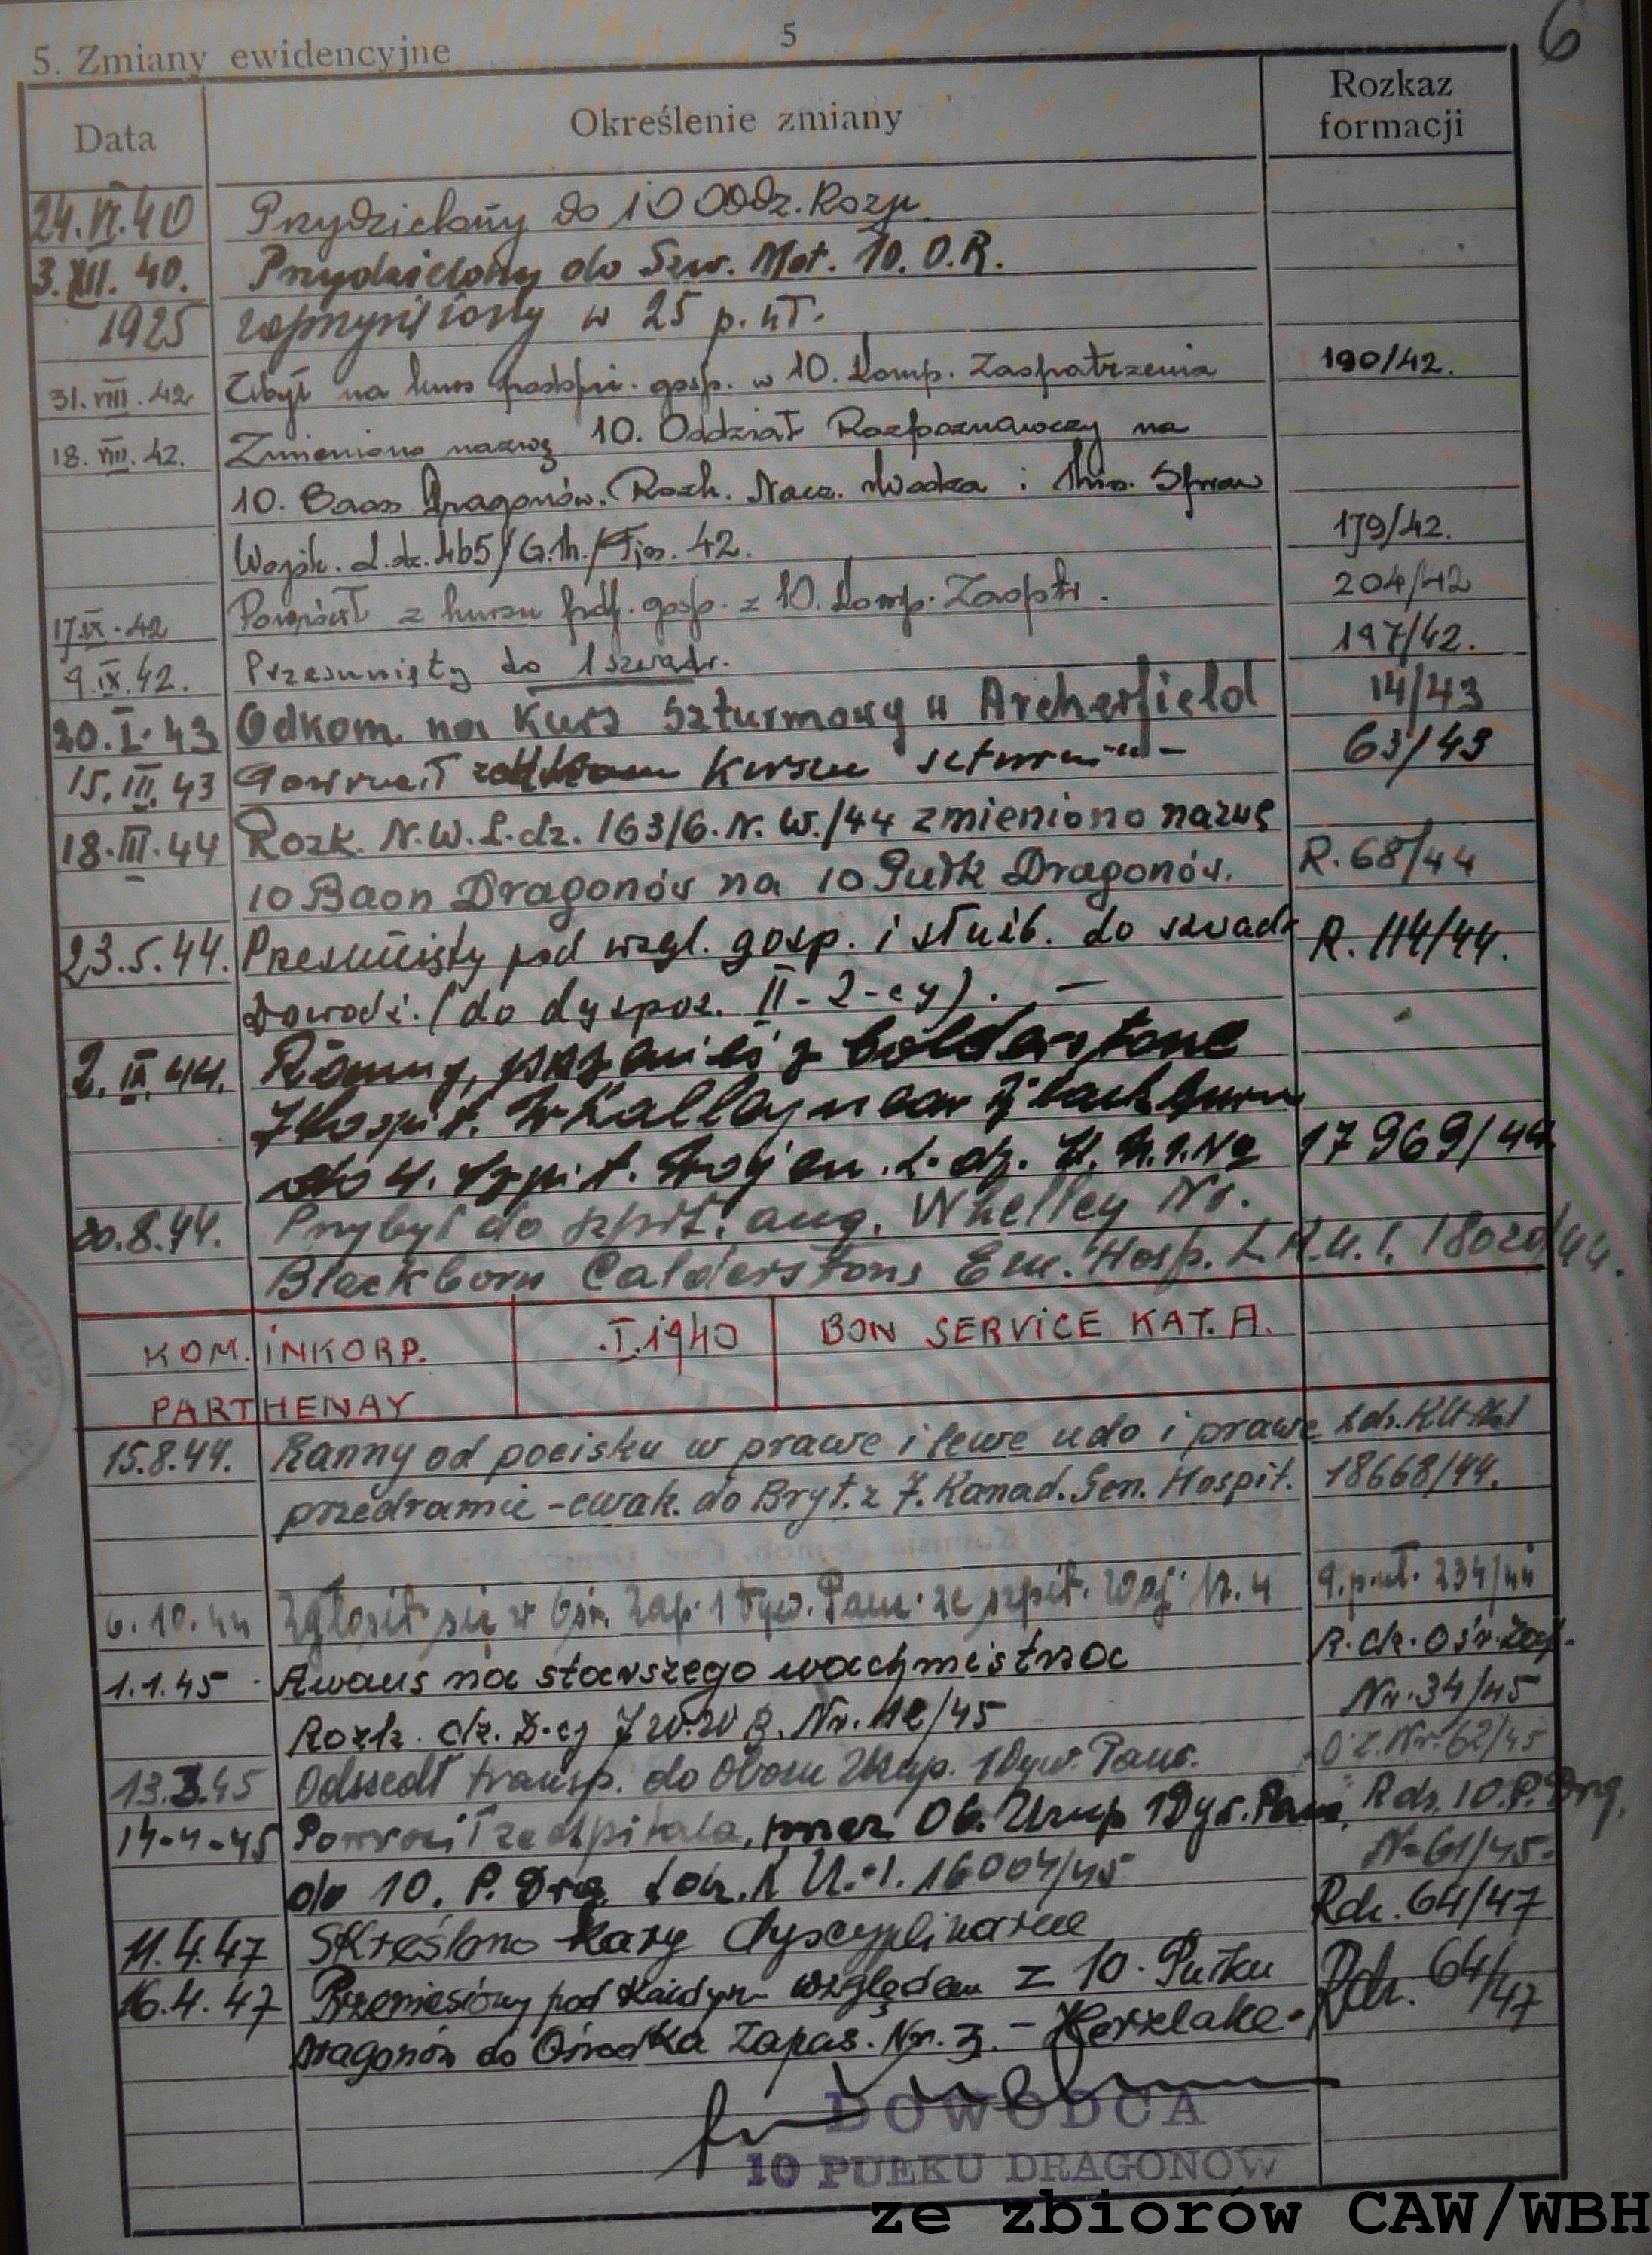 5
6
5. Zmiany ewidencyjne
Data Określenie zmiany Rozkaz formacji
24.VI.40 Przydzielony do 10 Oddz. Rozp.
3.XII.40. Przydzielony do Szw. Mot. 10. O.R.
1925 zaprzysiężony w 25 p. uł.
31.VIII.42 Ubył na kurs podofic. gosp. w 10. Komp. Zaopatrzenia 190/42.
18.VIII.42. Zmieniono nazwę 10. Oddział Rozpoznawczy na
10. Baon Dragonów. Rozk. Nacz. Wodza i Min. Spraw
Wojsk. L.dz. 465/G.M./Tjn. 42. 179/42.
17.IX.42 Powrócił z kursu pdf. gosp. z 10. Komp. Zaoptr. 204/42
9.IX.42. Przesunięty do 1 szwadr. 197/42.
20.I.43 Odkom. na Kurs szturmowy w Archerfield 14/43
15.III.43 Powrócił z kursu szturm. 63/43
18.III.44 Rozk. N.W. L.dz. 163/G.N.W./44 zmieniono nazwę
10 Baon Dragonów na 10 Pułk Dragonów. R.68/44
23.5.44. Przesunięty pod wzgl. gosp. i służb. do szwadr. R.114/44.
Dowodz. (do dyspoz. II-2-cy). —
2.IX.44. Ranny, z Colderstone
Hospit. Whalley near Blackburn
do 4. Szpit. Wojen. L.dz. K.U.1. No 17969/44
30.8.44. Przybył do szpit. ang. Whelley Nr.
Blackborn Calderstons Em. Hosp. L.K.U.1. 18020/44.
KOM. INKORP. .I.1940 BON SERVICE KAT. A.
PARTHENAY
15.8.44. Ranny od pocisku w prawe i lewe udo i prawe L.dz. KU No1
przedramie - ewak. do Bryt. z 7. Kanad. Gen. Hospit. 18668/44.
6.10.44 Zgłosił się w Ośr. Zap. 1 Dyw. Panc. ze szpit. Woj. Nr. 4 234/44
1.1.45 Awans na starszego wachmistrza R.dz. Ośr. Zap.
Rozk. dz. D-cy Nr. 12/45 Nr. 34/45
13.3.45 Odszedł transp. do Obozu Uzup. 1 Dyw. Panc. O.Z. Nr. 62/45
14-4-45 Powrócił ze szpitala, przez Ob. Uzup 1 Dyw. Panc. Rdz. 10.P.Drg.
do 10. P. Drg. L.dz. K.U.-1. 16004/45 N-61/45.
11.4.47 Skreślono kary dyscyplinarne Rdz. 64/47
16.4.47 Przeniesiony pod każdym względem z 10. Pułku Rdz. 64/47
Dragonów do Ośrodka Zapas. Nr. 3. - Herzlake.
DOWÓDCA
10 PUŁKU DRAGONÓW
ze zbiorów CAW/WBH